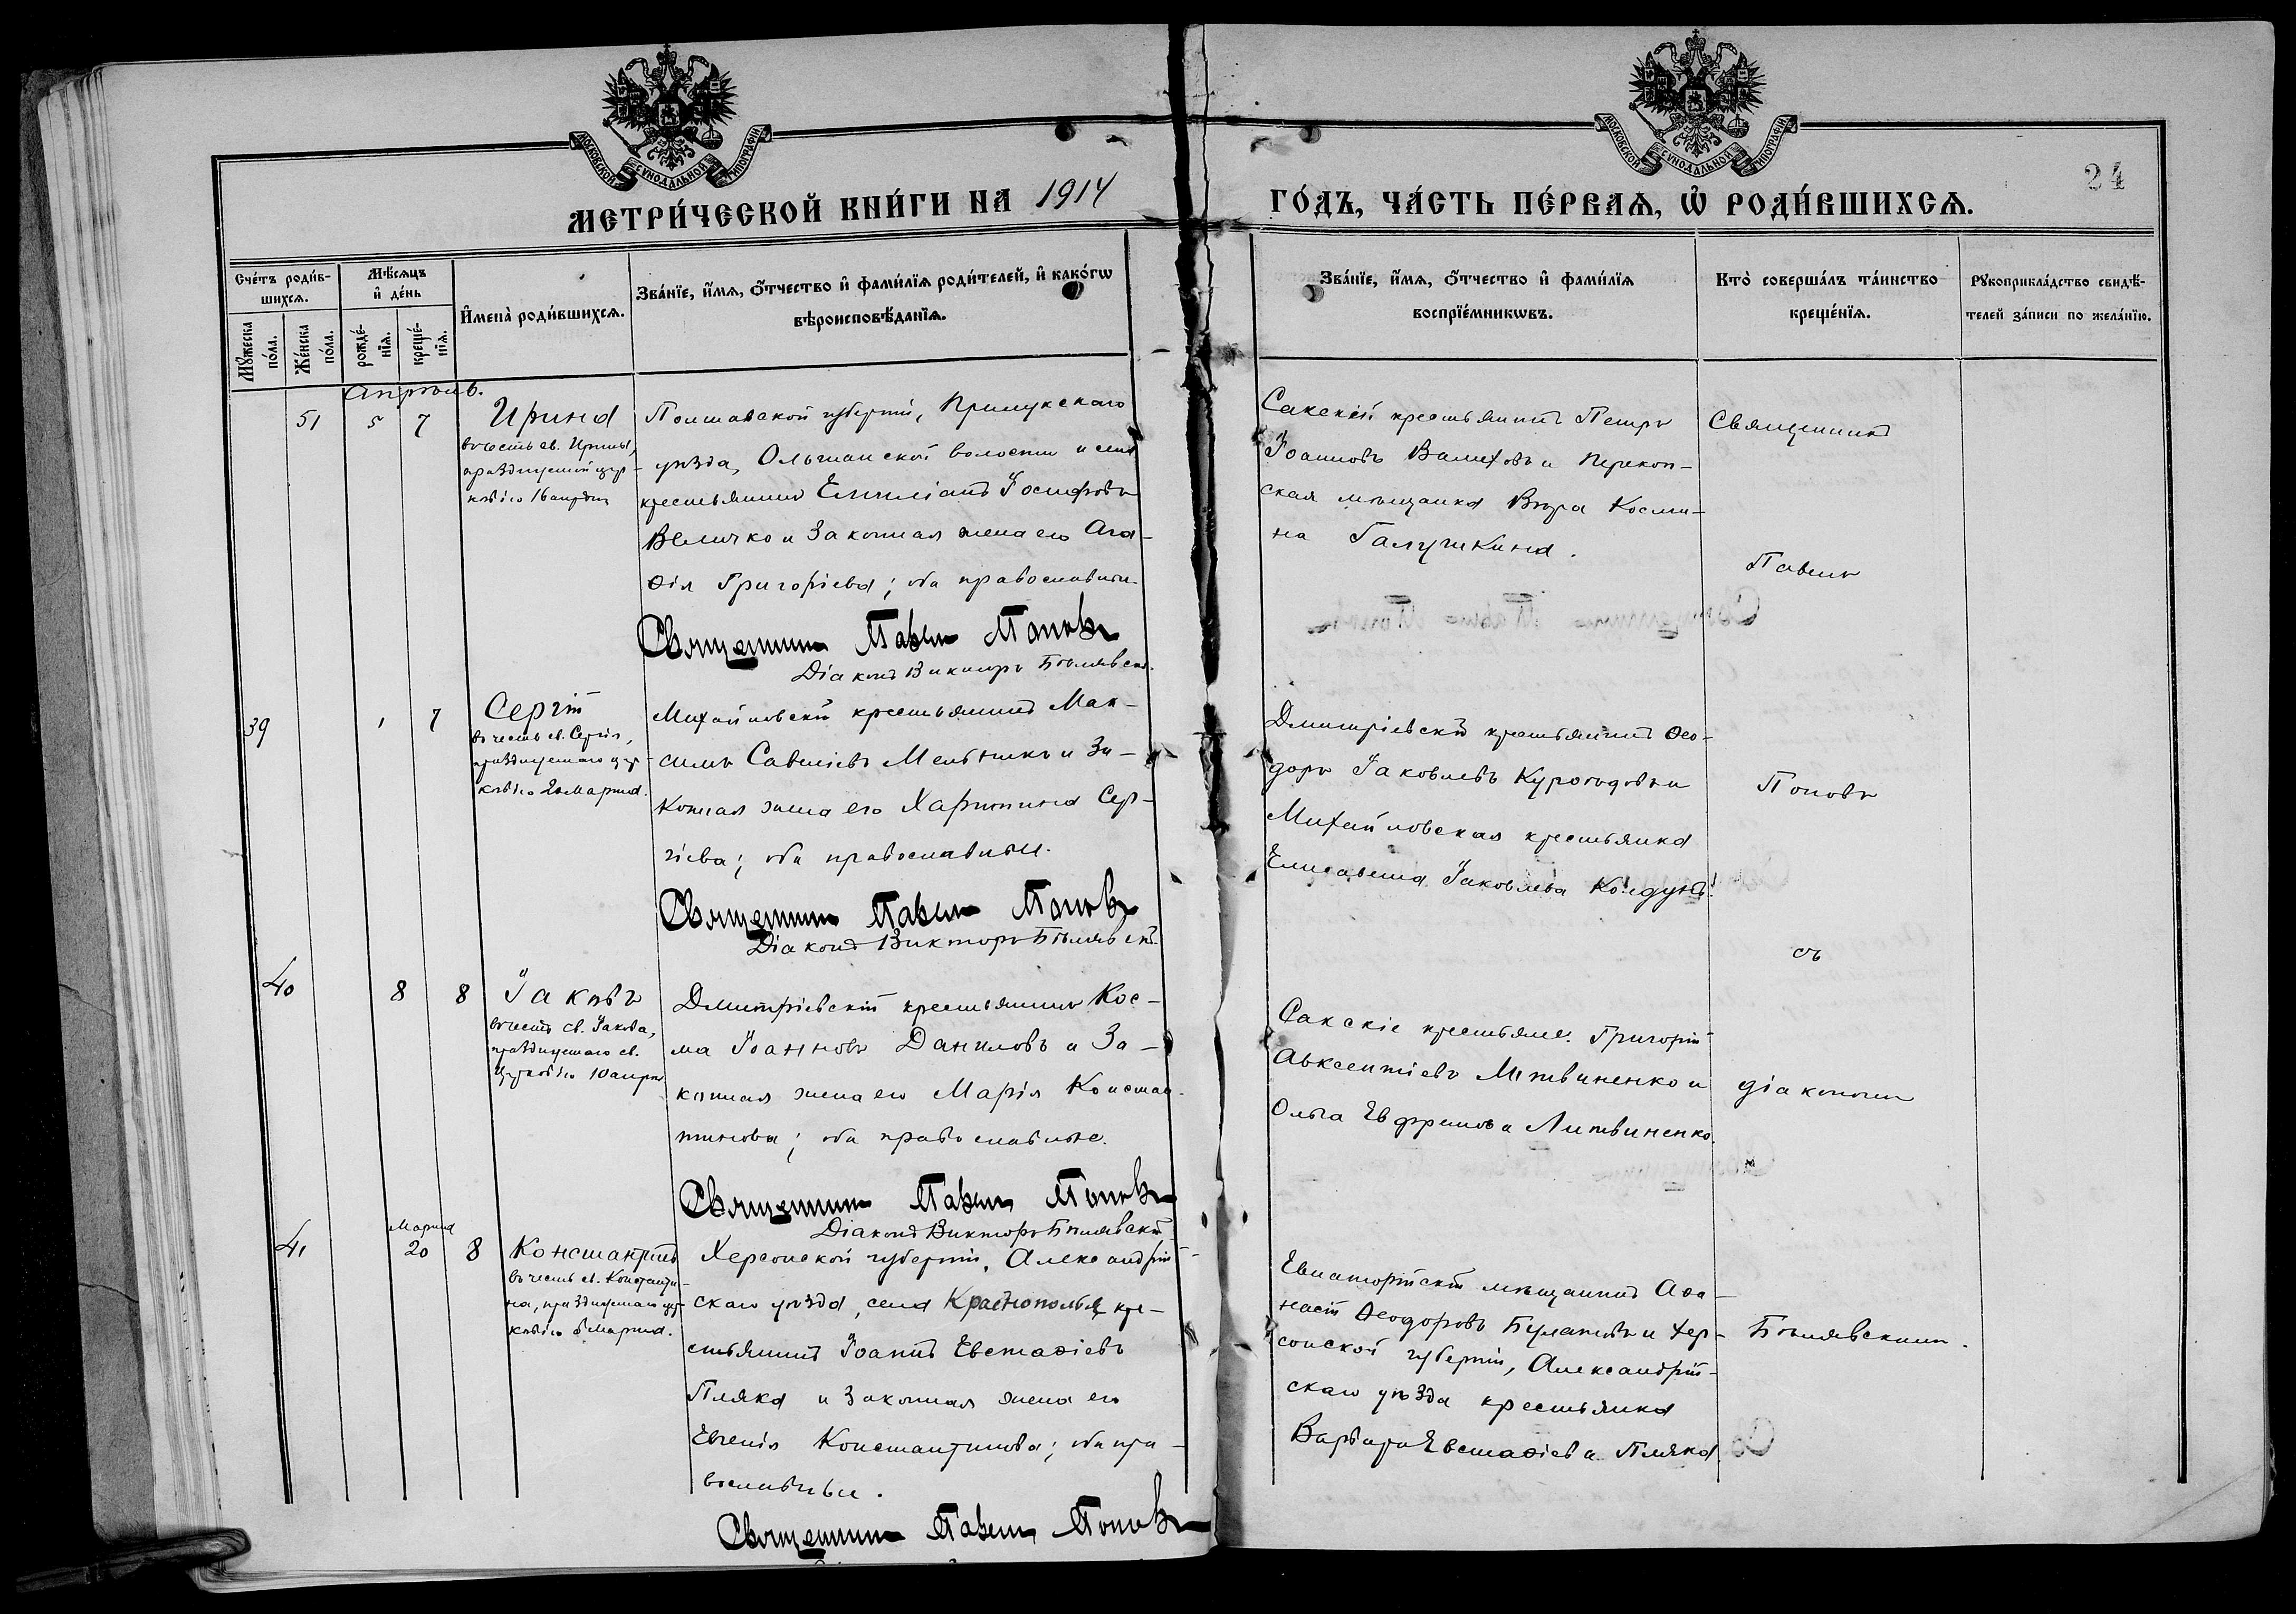 МОСКОВСКОЙ СѴНОДАЛЬНОЙ ТИПОГРАФІИ
МОСКОВСКОЙ СѴНОДАЛЬНОЙ ТИПОГРАФІИ
24
МЕТРИ́ЧЕСКОЙ КНИ́ГИ НА 1914 ГО́ДЪ, ЧА́СТЬ ПЕ́РВАѦ, Ѡ҆ РОДИ́ВШИХСѦ.
Сче́тъ роди́в-
шихсѧ.
Мꙋ́жеска по́ла.
Же́нска по́ла.
Мѣ́сѧцъ
и҆ де́нь
рожде́-
нїѧ.
креще́-
нїѧ.
И҆мена̀ роди́вшихсѧ.
Зва́нїе, и҆́мѧ, ѻ҆́тчество и҆ фами́лїѧ роди́телей, и҆ како́гѡ
вѣроисповѣ́данїѧ.
Зва́нїе, и҆́мѧ, ѻ҆́тчество и҆ фами́лїѧ
воспрїе́мникѡвъ.
Кто̀ соверша́лъ та́инство
креще́нїѧ.
Рꙋкоприкла́дство свидѣ́-
телей за́писи по жела́нїю.
Апрѣль.
51 5 7
Ирина
въ честь св. Ирины,
празднуемой цер-
ковію 16 апрѣля
Полтавской губерніи, Прилукскаго
уѣзда, Ольшанской волости и села
крестьянинъ Емиліанъ Іосифовъ
Величко и законная жена его Ага-
ѳія Григоріева; оба православные.
Священникъ Павелъ Поповъ
Діаконъ Викторъ Бѣлявскій.
Сакскій крестьянинъ Петръ
Іоанновъ Валиховъ и Перекоп-
ская мѣщанка Вѣра Косми-
на Галушкина.
Священникъ
Павелъ
39 1 7
Сергій
въ честь св. Сергія,
празднуемаго цер-
ковію 20 Марта.
Михайловскій крестьянинъ Мак-
симъ Савеліевъ Мельникъ и за-
конная жена его Харитина Сер-
гіева; оба православные.
Священникъ Павелъ Поповъ
Діаконъ Викторъ Бѣлявскій.
Дмитріевскій крестьянинъ Ѳео-
доръ Іаковлевъ Курогодовъ и
Михайловская крестьянка
Елисавета Іаковлева Колдунъ.
Поповъ
съ
40 8 8
Іаковъ
въ честь св. Іакова,
празднуемаго св.
Церковію 10 апрѣля
Дмитріевскій крестьянинъ Кос-
ма Іоанновъ Даниловъ и За-
конная жена его Марія Констан-
тинова; оба православные.
Священникъ Павелъ Поповъ
Діаконъ Викторъ Бѣлявскій.
Сакскіе крестьяне: Григорій
Авксентіевъ Литвиненко и
Ольга Евфремова Литвиненко.
діакономъ
Марта
41 20 8
Константинъ
въ честь св. Константи-
на, празднуемаго цер-
ковію 6 Марта.
Херсонской губерніи, Александрій-
скаго уѣзда, села Краснополья кре-
стьянинъ Іоаннъ Евстаѳіевъ
Пляка и законная жена его
Евгенія Константинова; оба пра-
вославные.
Священникъ Павелъ Поповъ
Евпаторійскій мѣщанинъ Аѳа-
насій Ѳеодоровъ Булатовъ и Хер-
сонской губерніи, Александрій-
скаго уѣзда крестьянка
Варвара Евстаѳіева Пляка.
Бѣлявскимъ.